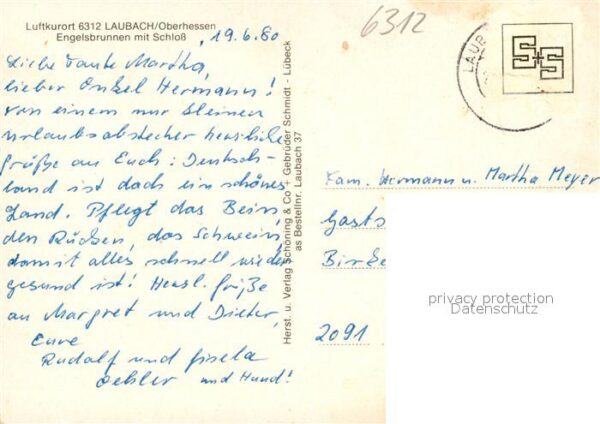 Luftkurort 6312 LAUBACH/Oberhessen
Engelsbrunnen mit Schloß
6312
, 19.6.80
Liebe Tante Martha,
lieber Onkel Hermann!
Von einem nur kleinen
Urlaubsabstecher herzliche
Grüße an Euch: Deutsch-
land ist doch ein schönes
Land. Pflegt das Bein,
den Rücken, das Schwein,
damit alles schnell wieder
gesund ist! Herzl. Grüße
an Margret und Dieter,
Eure
Rudolf und Gisela
Oehler und Hund!
Herst. u. Verlag Schöning & Co + Gebrüder Schmidt - Lübeck
as Bestellnr. Laubach 37
LAUB
S+S
Fam. Hermann u. Martha Meyer
Gasts
Birke
2091
privacy protection
Datenschutz